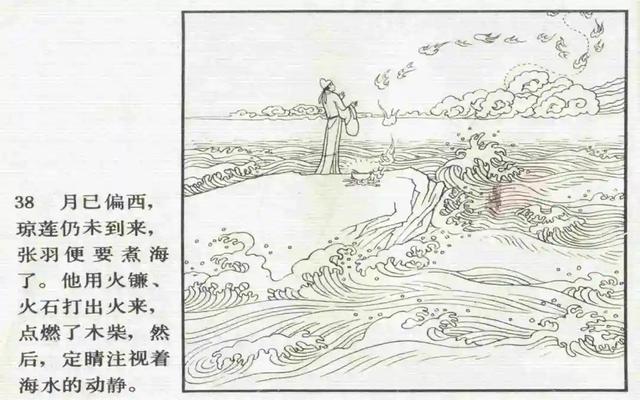 38 月已偏西，
琼莲仍未到来，
张羽便要煮海
了。他用火镰、
火石打出火来，
点燃了木柴，然
后，定睛注视着
海水的动静。